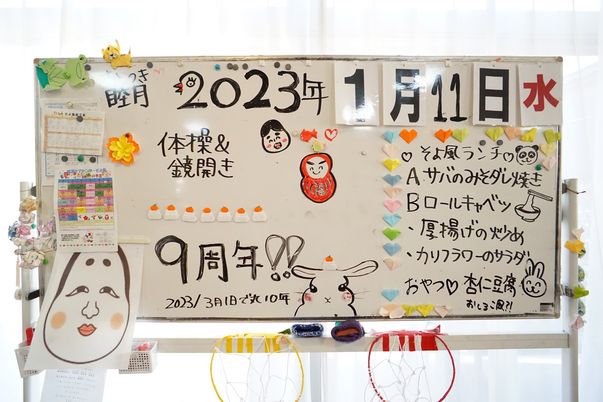 睦月
むつき
2023年
1月11日 水
体操&
鏡開き
9周年!!
2023/3月1日で丸10年
♡そよ風ランチ♡
Aサバのみそダレ焼き
Bロールキャベツ
・厚揚げの炒め
・カリフラワーのサラダ
おやつ♡杏仁豆腐
おしるこ風?!